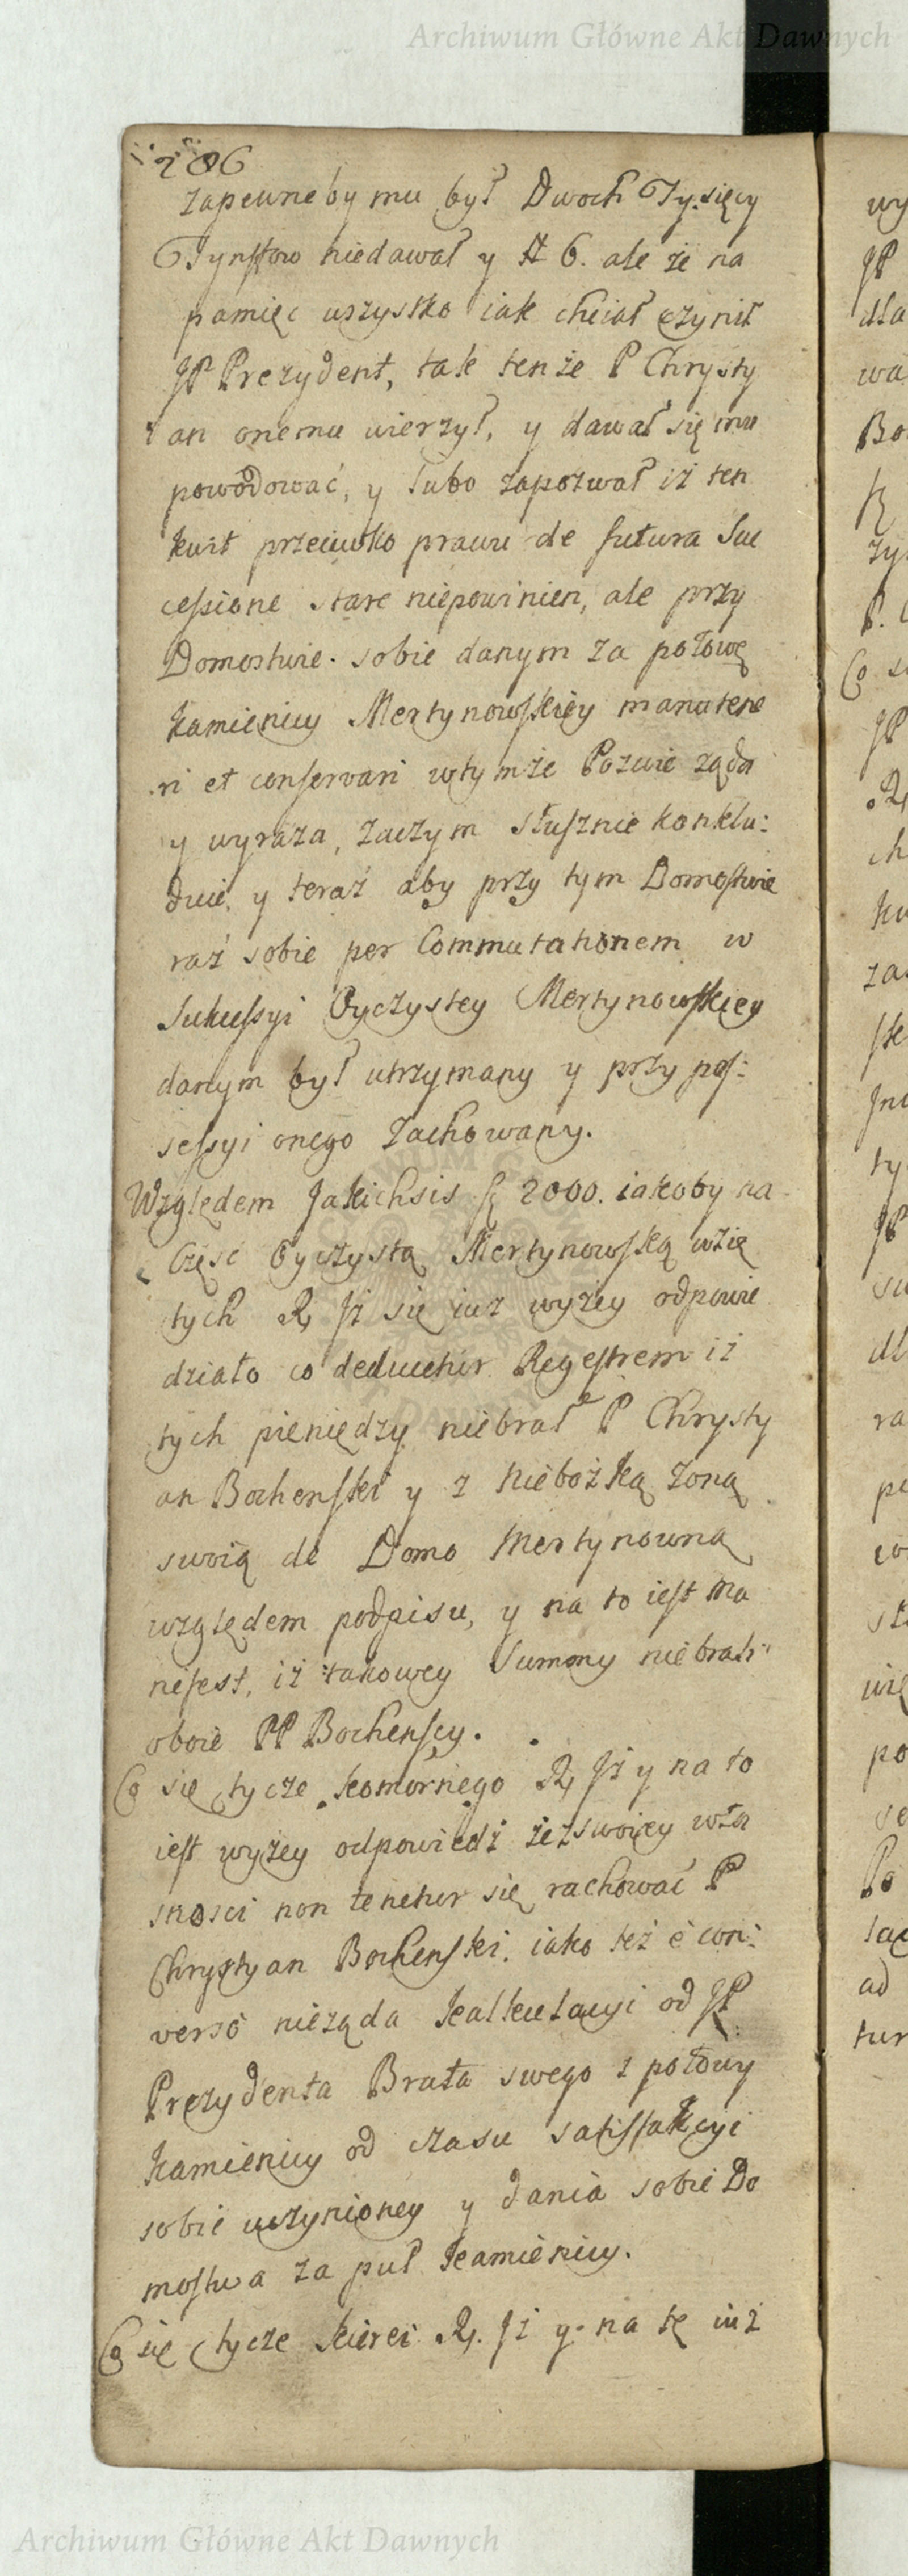 Archiwum Główne Akt Dawnych
206
zapewneby mu był Dwoch Tysięcy
Tynffow niedawał y # 6. ale że na
pamięc wszystko iak chciał czynił
JP Prezydent, tak tenże P Chrysty
an onemu wierzył, y dawał się mu
powodować, y lubo zapozwał iż ten
kwit przeciwko prawu de futura Suc
cessione stare niepowinien, ale przy
Domostwie sobie danym za połowę
kamienicy Mertynowskiey manutene
ri et conservari wtymże Pozwie ząda
y wyraza, zaczym słusznie konklu:
duie, y teraź aby przy tym Domostwie
raź sobie per Commutationem w
Sukcessyi Oyczystey Mertynowskiey
danym był utrzymany y przy pos:
sessyi onego zachowany.
Względem Jakichsis 2000. iakoby na
Częsc Oyczystą Mertynowską wzię
tych R, Iż się iuz wyżey odpowie
działo co deducitur Regestrem iż
tych pieniędzy niebrał P Chrysty
an Bochenski y z Niebożką Zoną
swoią de Domo Mertynowną
względem podpisu, y na to iest ma
nifest, iż takowey Summy niebrali
oboie PP Bochenscy.
Co się tycze komornego R, Iż y na to
iest wyżey odpowiedź że z swoiey wła
snosci non tenetur się rachować P
Chrystyan Bochenski, iako też e con:
verso nieząda kalkulacyi od JP
Prezydenta Brata swego z połowy
Kamienicy od czasu satisfakcyi
sobie uczynioney y dania sobie Do
mostwa za puł kamienicy.
Co się tycze R. Iż y na tę iuż
wy
JP
dla
wa
Bo
zy
P.
Co
JP
R,
ch
ku
za
ty
JP
ra
po
Po
ad
tur
Archiwum Główne Akt Dawnych